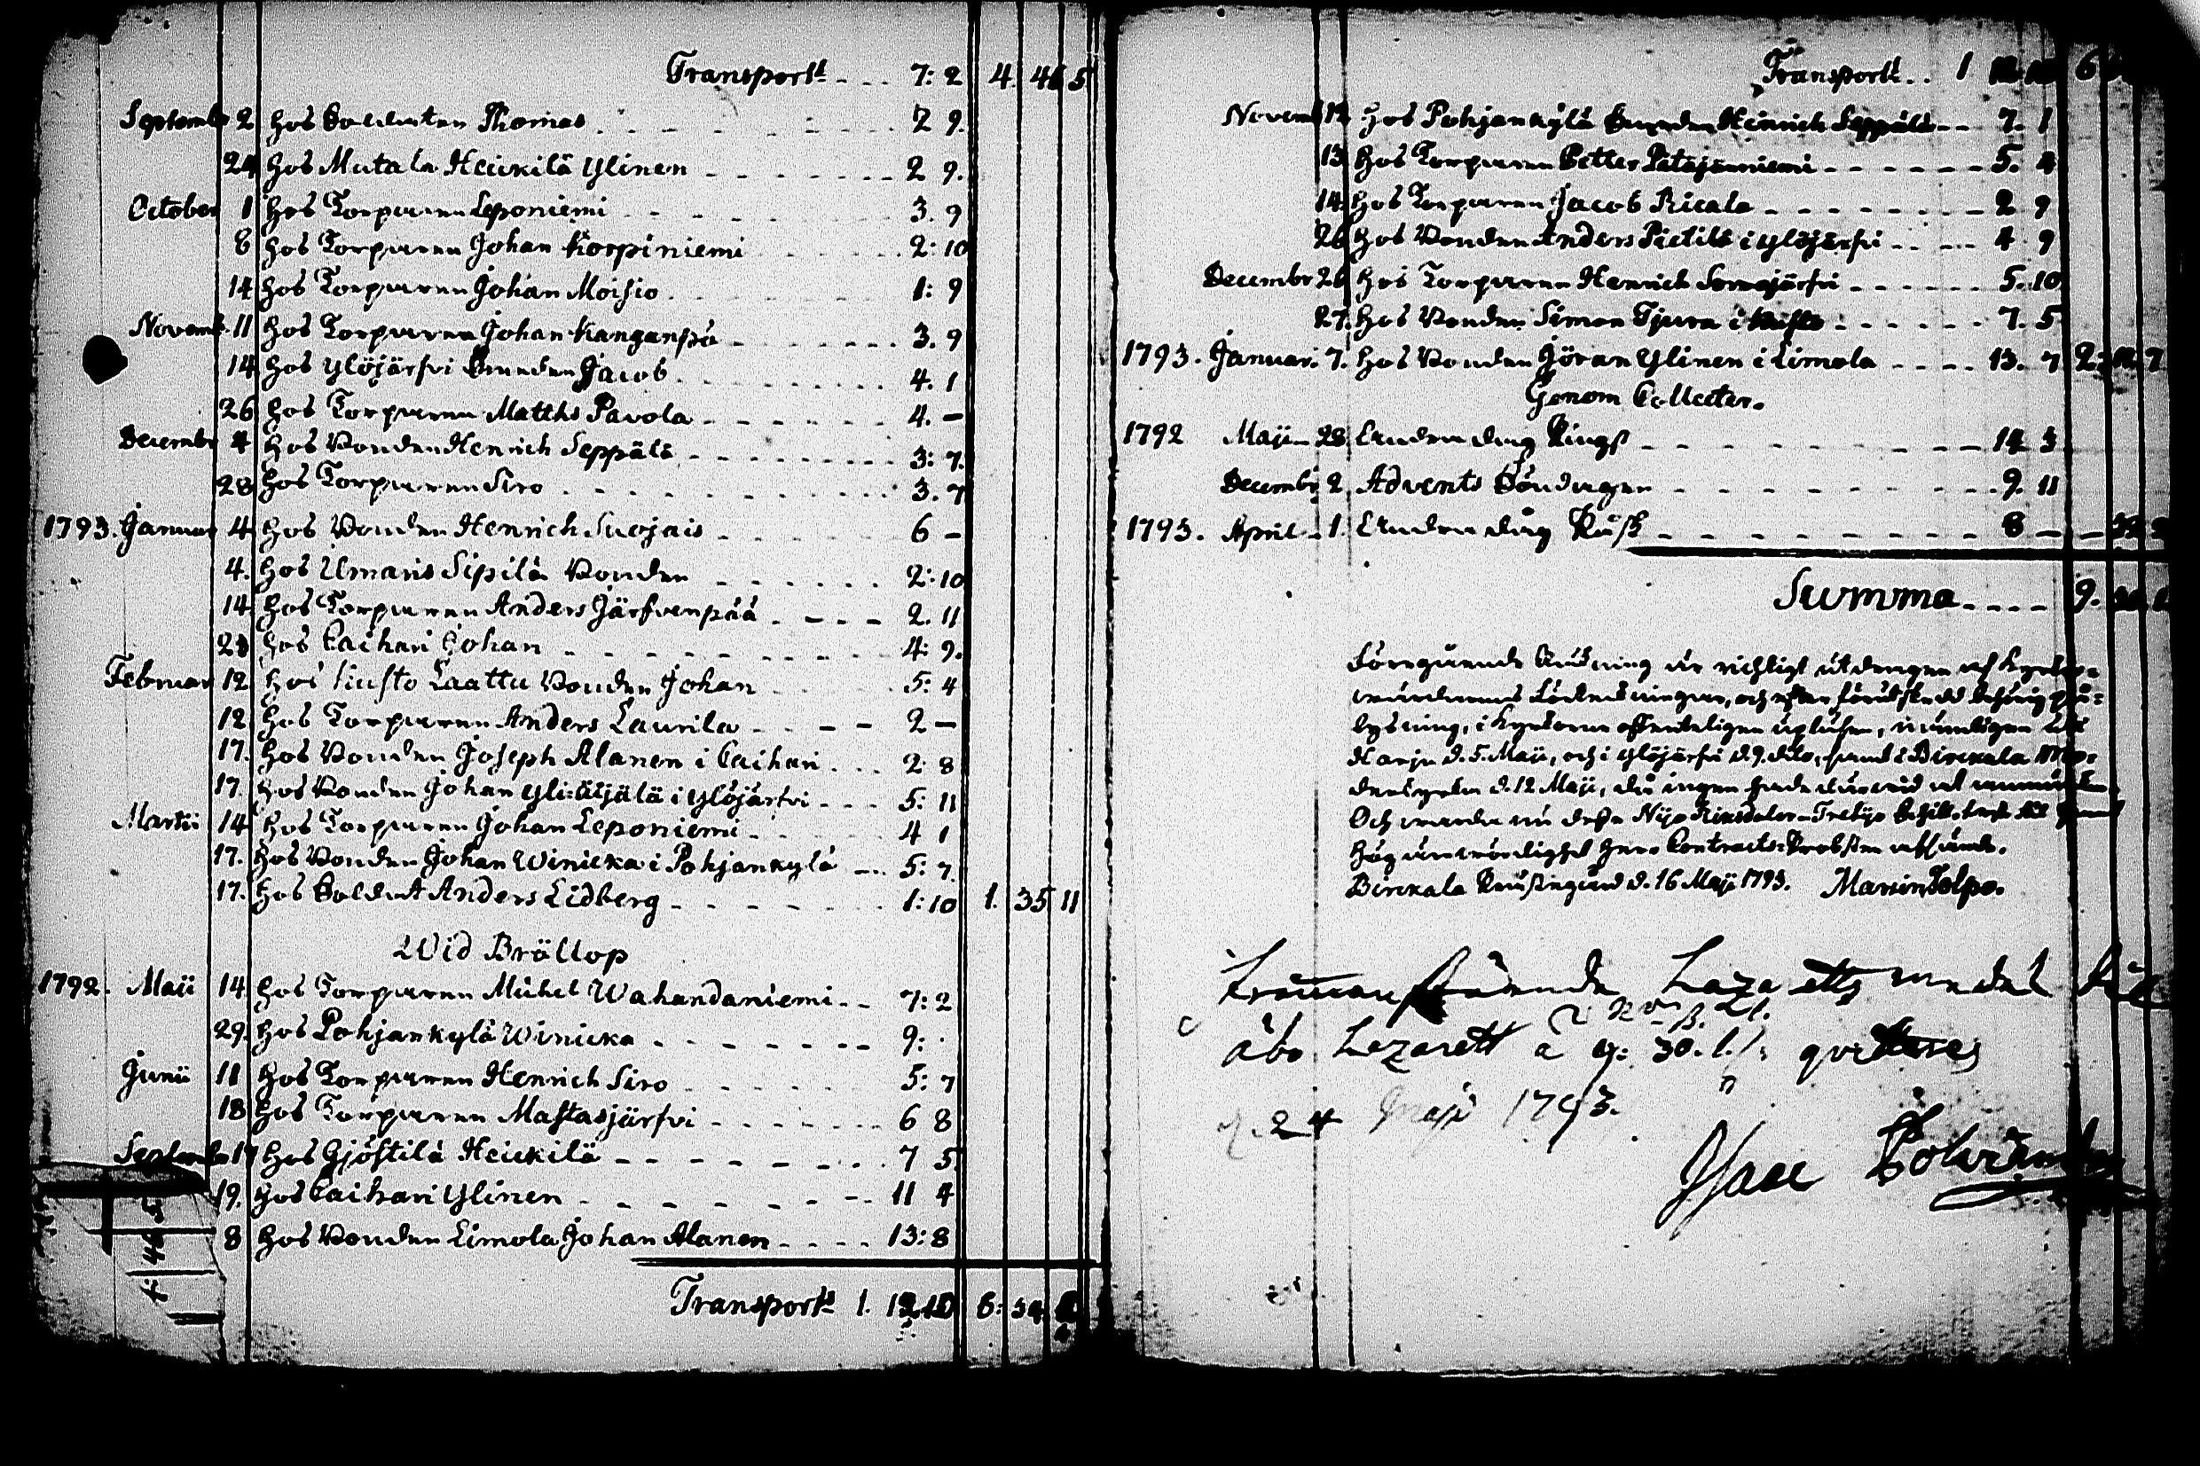 Transport - - - 7: 2 4. 46 5
Septembr 2 Hos Soldaten Thomas - - - 2 9.
24 Hos Mutala Heickilä Ylinen - - - 2 9.
October 1 Hos Torparen Leponiemi - - - 3. 9
8 Hos Torparen Johan Korpiniemi - - - 2: 10
14 Hos Torparen Johan Moisio - - - 1: 9
Novemb. 11 Hos Torparen Johan Kanganpä - - - 3. 9
14 Hos Ylöjärfvi Bonden Jacob - - - 4. 1
26 Hos Torparen Matths Pavola - - - 4. —
Decembr 4 Hos Bonden Henrich Seppälä - - - 3: 7.
28 Hos Torparen Siro - - - 3. 7
1793. Januar 4 Hos Bonden Henrich Suojais - - - 6 —
4. Hos Umaris Sipilä Bonden - - - 2: 10
14 Hos Torparen Anders Järfvenpää - - - 2. 11
23 Hos Caihari Johan - - - 4: 9.
Februar 12 Hos Kusto Laattu Bonden Johan - - - 5: 4
12 Hos Torparen Anders Laurila - - - 2 —
17. Hos Bonden Joseph Alanen i Caihari - - - 2: 8
17. Hos Bonden Johan Yli: i Ylöjärfvi - - - 5: 11
Martii 14 Hos Torparen Johan Leponiemi - - - 4 1
17. Hos Bonden Johan Winicka i Pohjankylä - - - 5: 7
17. Hos Soldat Anders Lidberg - - - 1: 10 1. 35 11
Wid Bröllop
1792. Maii 14 Hos Torparen Michel Wahandaniemi - - 7: 2
29. Hos Pohjankylä Winicka - - - 9: .
Junii 11 Hos Torparen Henrich Siro - - - 5: 7
18 Hos Torparen Mastasjärfvi - - - 6 8
Septembr 17 Hos Gjöstilä Heickilä - - - 7 5
19. Hos Caihari Ylinen - - - 11 4
8 Hos Bonden Limola Johan Alanen - - - 13: 8
Transport 1. 12 10 6: 34.
Transport. . 1 6
Novemb 12 Hos Pohjankylä Bonden Heinrich Seppälä - - 7. 1
13 Hos Torparen Petter Patajanniemi - - - 5. 4
14. Hos Torparen Jacob Ricala - - - 2 9
26 Hos Bonden Anders Pietilä i Ylöjärfvi - - - 4 9
Decembr 26 Hos Torparen Henrich Sornajärfvi - - - 5. 10
27. Hos Bonden Simon Tjura i Kusto - - - 7. 5
1793. Januari. 7. Hos Bonden Jöran Ylinen i Limola - - - 13. 7 2: 7
Genom Collecter.
1792 Maji 28 Annandag Pingst - - - 14 3
Decembr 2 Advents Söndagen - - - 9. 11
1793. April 1. Annandag Påsk - - - 8 —
Summa - - - - 9.
Föregående Räkning är richtigt utdragen af Kyrko-
wärdarnas och efter
lysning, i Kyrkorne offenteligen upläsen, nämligen uti
Harju d. 5. Maji, och i Ylöjärfvi d. 9. dito, samt i Birckala Mo-
derkyrka d. 12 Maji, då ingen hade därwid at
Och warda nu desse Nijo Riksdaler Tretijo
Högärewördighet Herr Contracts Probsten
Birckala Prästegård d. 16 Maji 1793. Martin Tolpo.
Lazaretts medel
Åbo Lazarett a 9: 30. qvitteres
d. 24 Maji 1793.
Isac